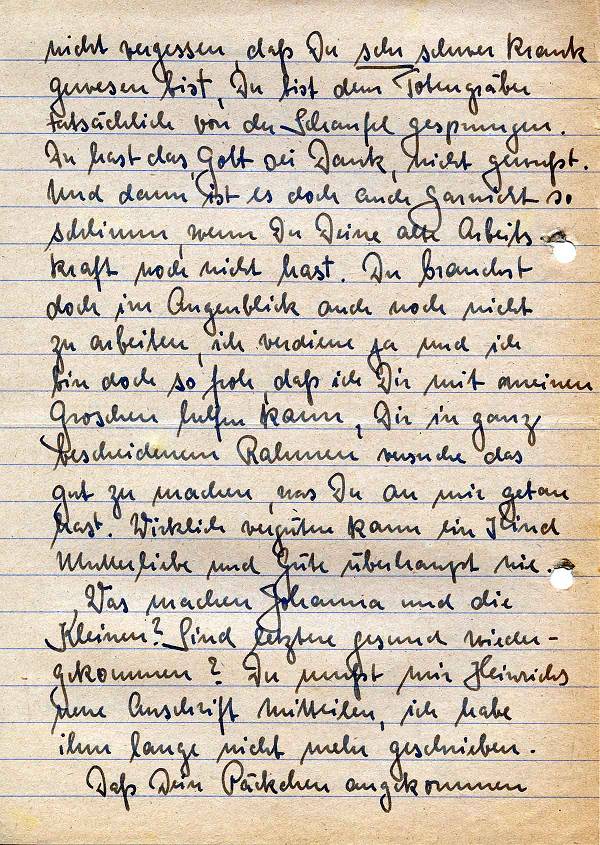 nicht vergessen, daß Du sehr schwer krank
gewesen bist, Du bist dem Totengräber
tatsächlich von der Schaufel gesprungen.
Du hast das, Gott sei Dank, nicht gewußt.
Und dann ist es doch auch garnicht so
schlimm, wenn Du Deine alte Arbeits-
kraft noch nicht hast. Du brauchst
doch im Augenblick auch noch nicht
zu arbeiten, ich verdiene ja und ich
bin doch so froh, daß ich Dir mit meinen
Groschen helfen kann, Dir in ganz
bescheidenem Rahmen versuche das
gut zu machen, was Du an mir getan
hast. Wirklich vergüten kann ein Kind
Mutterliebe und Güte überhaupt nie.
Was machen Johanna und die
Kleinen? Sind letztere gesund wieder-
gekommen? Du mußt mir Heinrichs
neue Anschrift mitteilen, ich habe
ihm lange nicht mehr geschrieben.
Daß Dein Päckchen angekommen